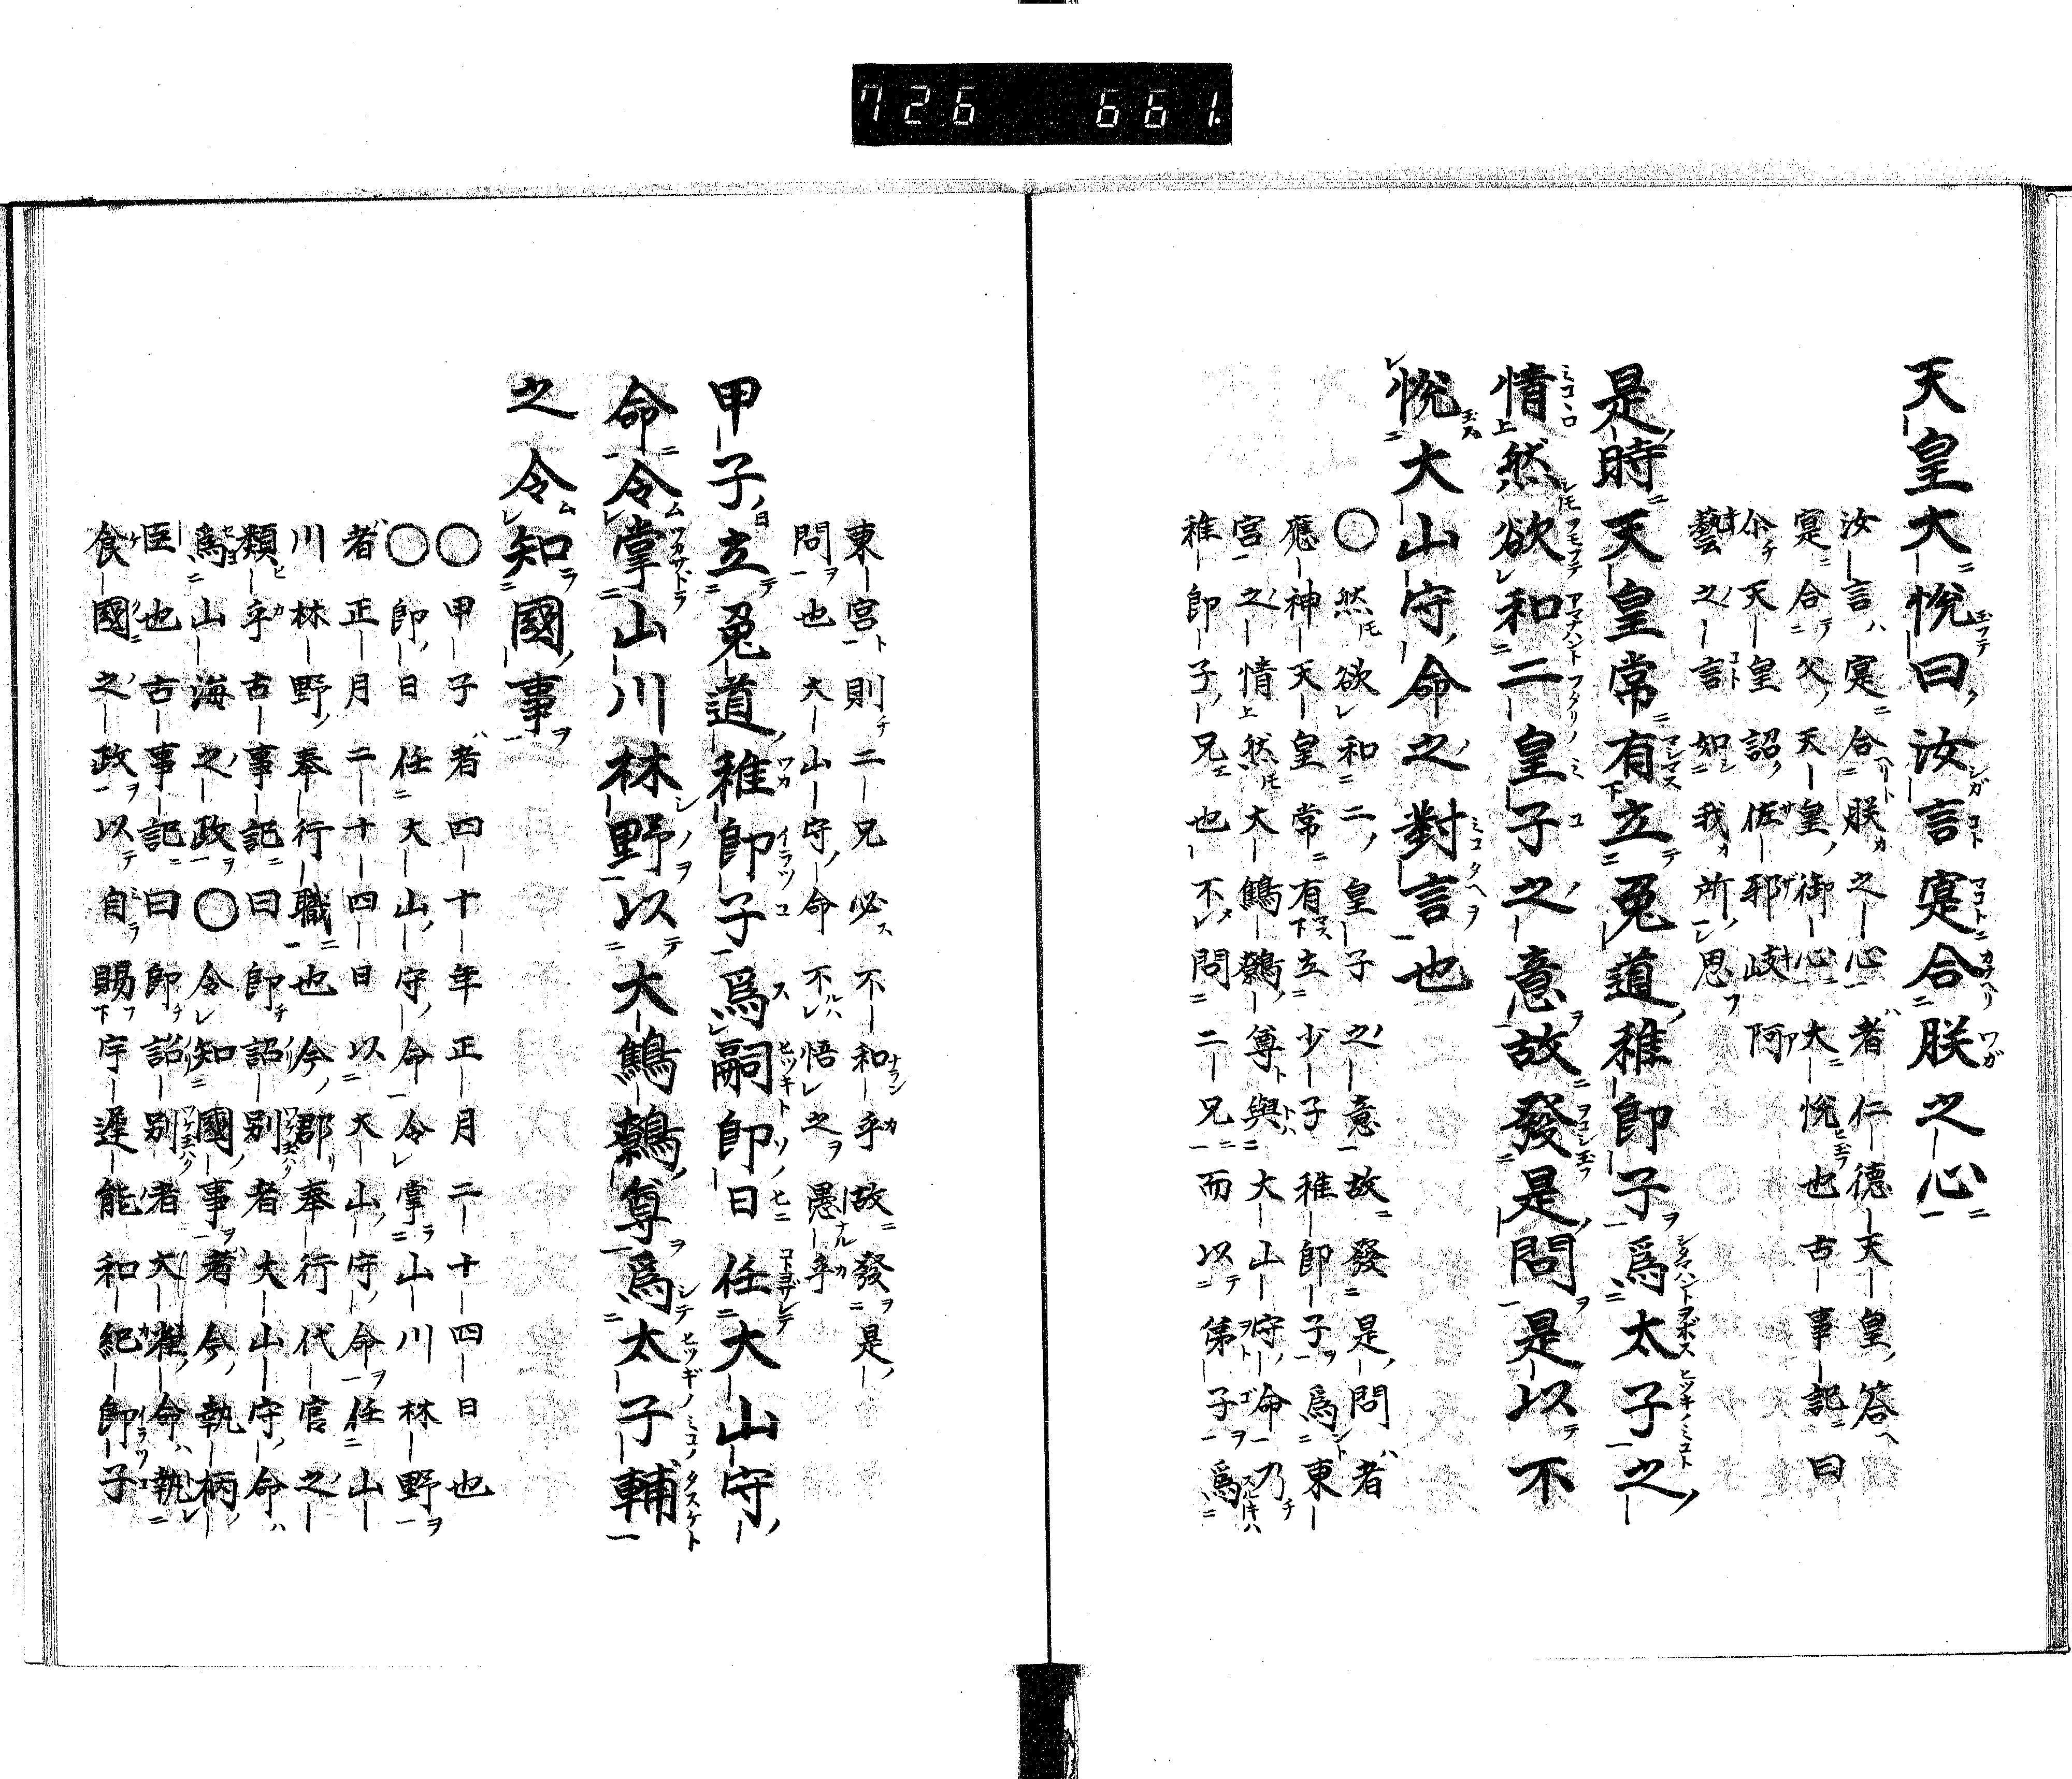 726 661.
天皇大悅曰汝言寔合朕之心
汝言寔合朕之心者仁德天皇答
寔合父天皇御心大悅也古事記曰
尒天皇詔佐邪岐阿
藝之言如我所思
是時天皇常有立菟道稚郎子爲太子之
情然欲和二皇子之意故發是問是以不
悅大山守命之對言也
○然欲和二皇子之意故發是問者
應神天皇常有立少子稚郎子爲東
宮之情然大鷦鷯尊與大山守命乃
稚郎子兄也不問二兄而以弟子爲
東宮則二兄必不和乎故發是
問也大山守命不悟之愚乎
甲子立菟道稚郎子爲嗣即日任大山守
命令掌山川林野以大鷦鷯尊爲太子輔
之令知國事
○甲子者四十年正月二十四日也
○即日任大山守命令掌山川林野
者正月二十四日以大山守命任山
川林野奉行職也今郡奉行代官之
類乎古事記曰即詔別者大山守命
爲山海之政○令知國事者今執柄
臣也古事記曰即詔別者大雀命執
食國之政以自賜宇遲能和紀郎子